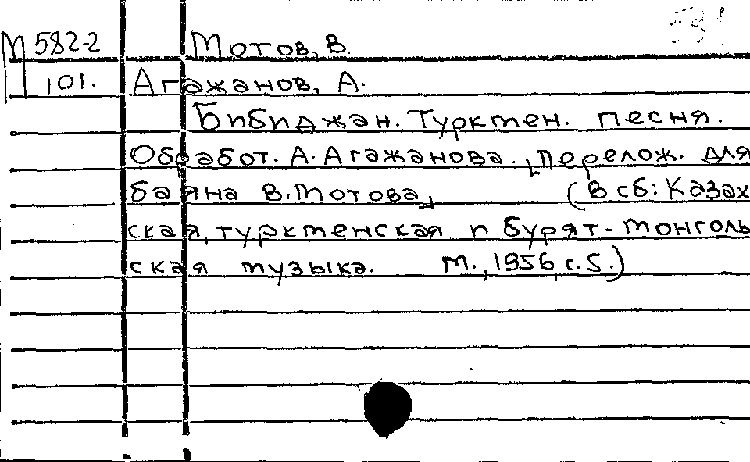 М 582-2 Мотов, В.
101. Агажанов, А.
Бибиджан. Туркмен. песня.
Обработ. А. Агажанова. [перелож. для
баяна В. Мотова] (В сб: Казах
ская, туркменская и бурят-монголь
ская музыка. М., 1956, с. 5.)